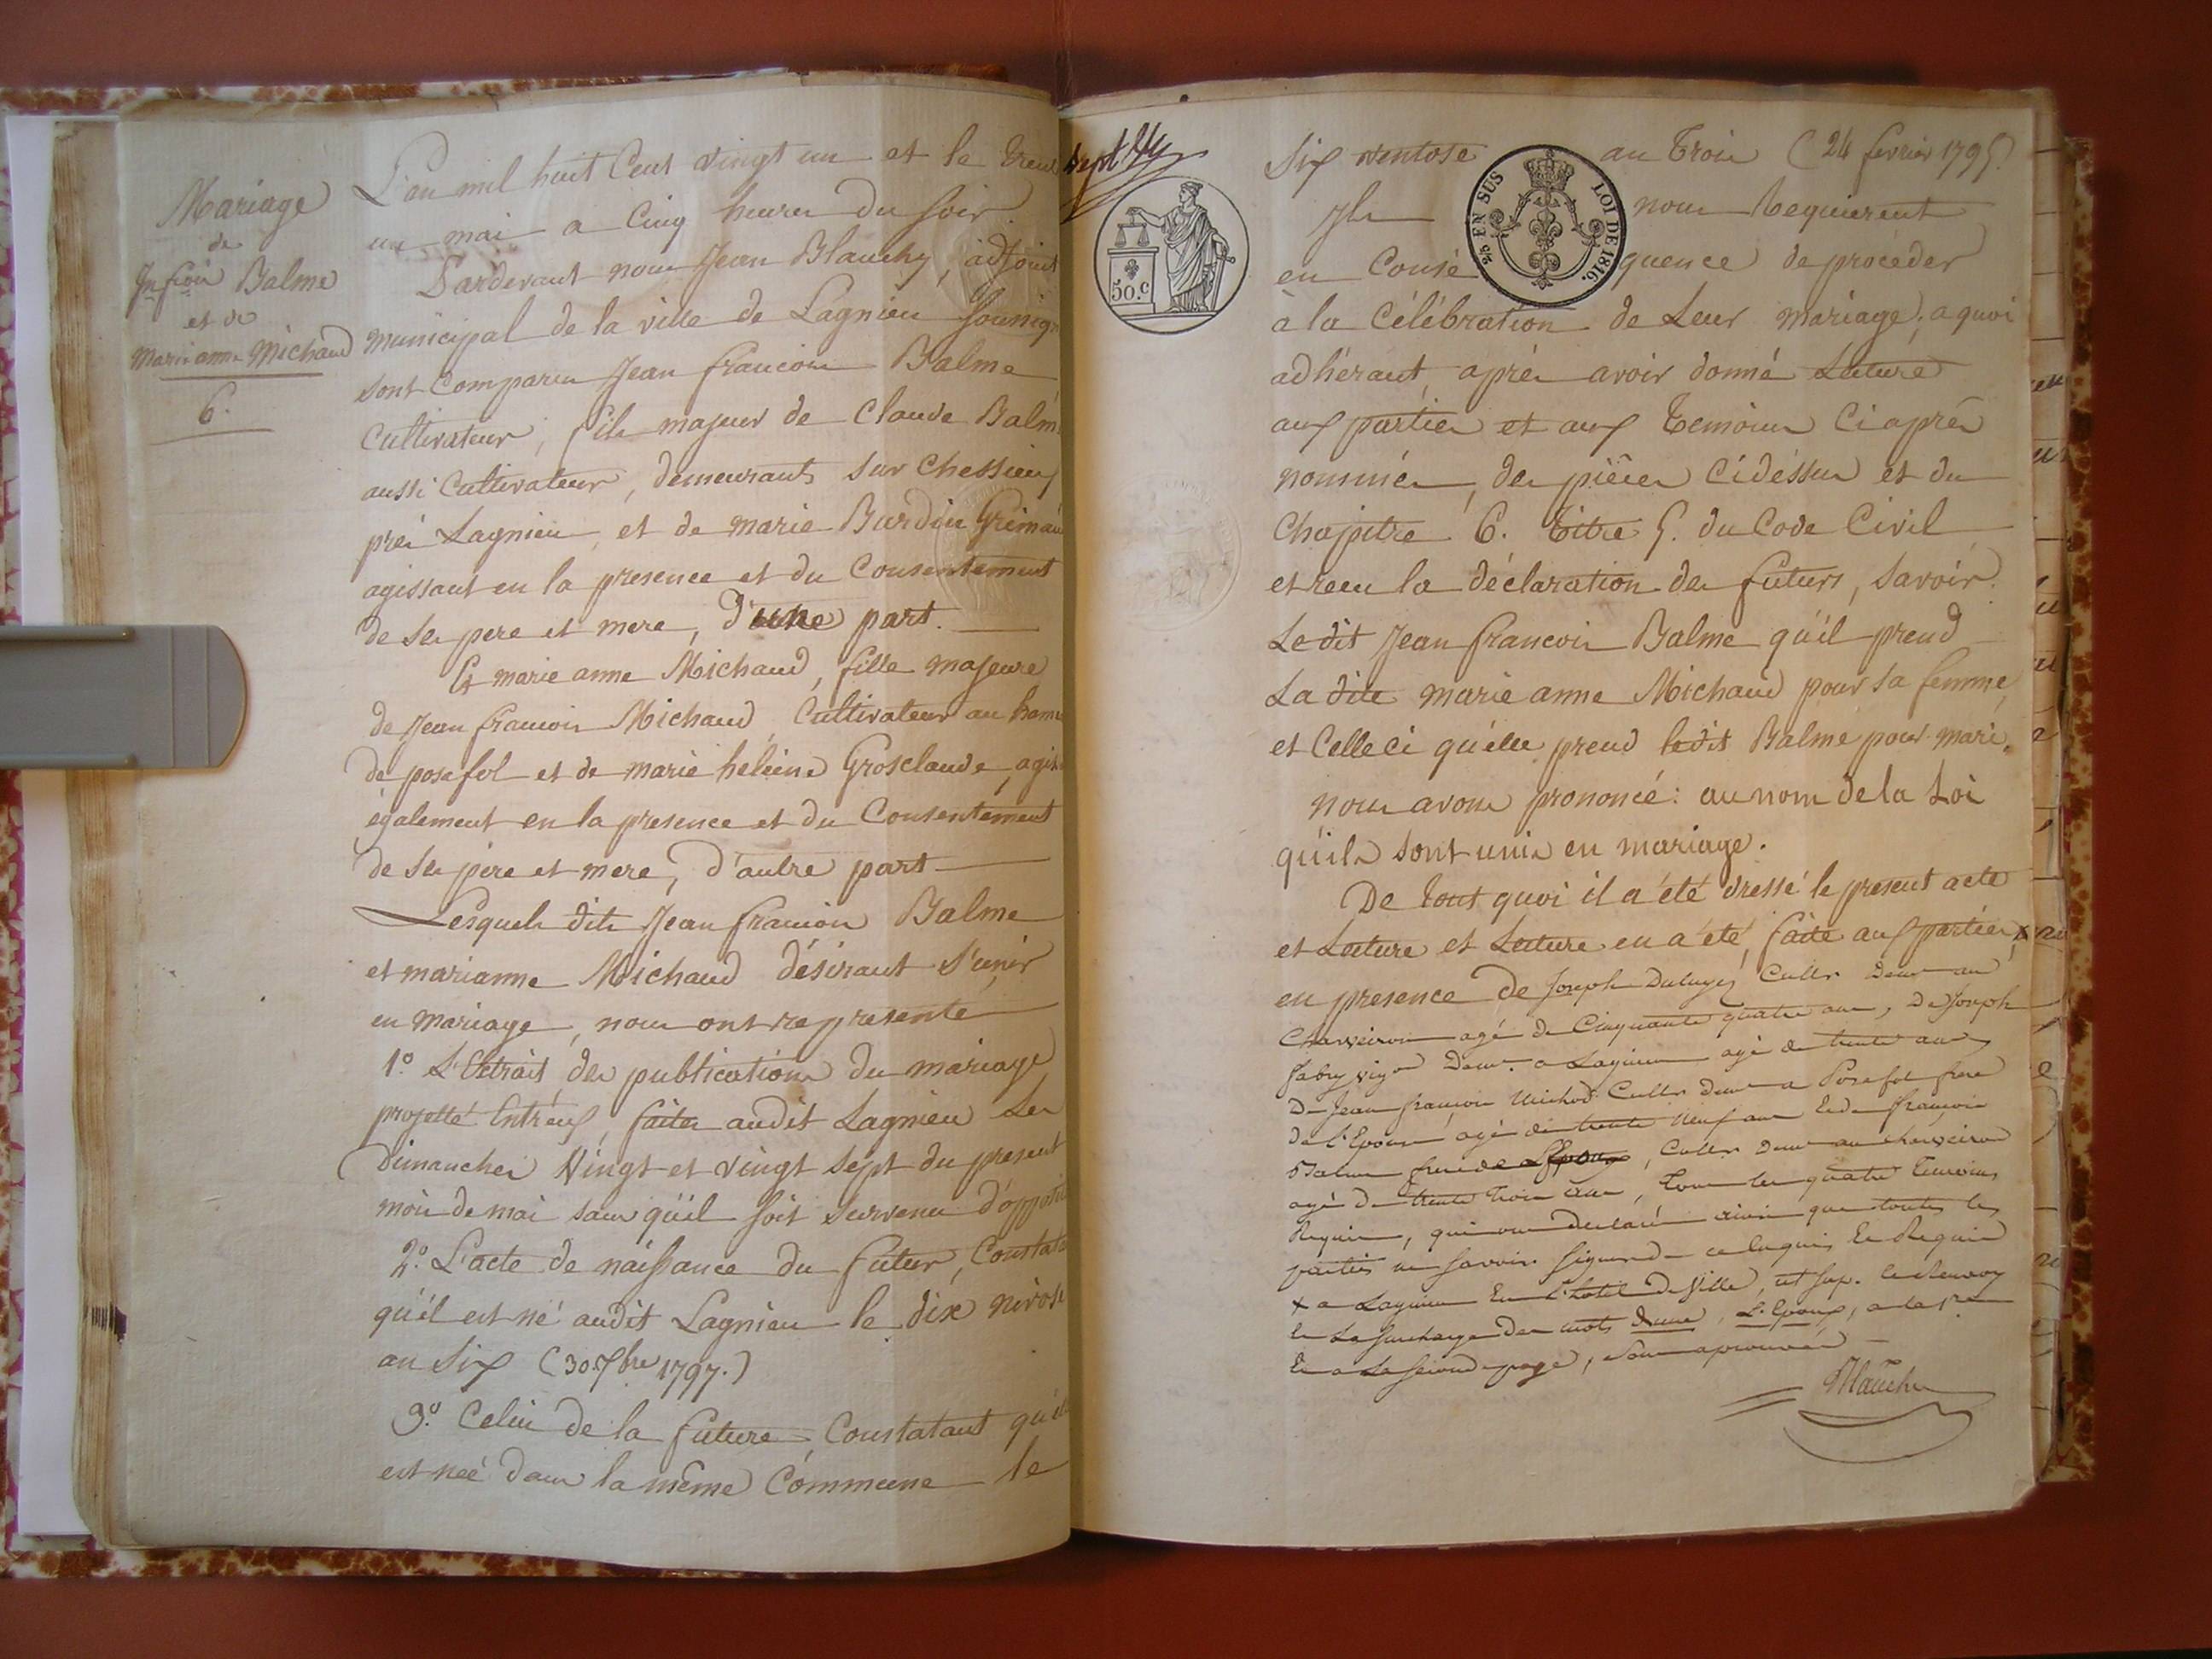 Mariage
de
Jn fçois Balme
et de
Marie anne Michaud
6.
L'an mil huit Cent vingt un et le trente
un mai a Cinq heures du soir.
Pardevant nous Jean Blanchy, adjoint
municipal de la ville de Lagnieu soussigné
sont comparus Jean françois Balme
Cultivateur, fils majeur de Claude Balme
aussi Cultivateur, demeurants sur Chessieux
près Lagnieu, et de marie Burdin Grimau
agissant en la presence et du Consentement
de ses pere et mere, d'une part.
Et marie anne Michaud, fille majeure
de Jean francois Michaud Cultivateur au hameau
de posafol et de marie heléine Grosclaude, agiss
également en la presence et du Consentement
de ses père et mere, d'autre part
Lesquels dits Jean francois Balme
et marianne Michaud désirant s'unir
en mariage, nous ont représenté
1.º L'Extrait des publications du mariage
projetté Entr'eux, faites audit Lagnieu les
dimanches Vingt et vingt sept du present
mois de mai sans qu'il soit survenu d'oppositi
2.º L'acte de naissance du futur, Constata
qu'il est né audit Lagnieu le dix nivose
an Six (30. Xbre 1797.)
3.º Celui de la future Constatant qu'elle
est née dans la même Commune le
Sept
50.c
25 EN SUS LOI DE 1816.
Six ventose an trois (24 fevrier 1795.
Ils nous Requierent
en Consé quence de procéder
à la Célébration de Leur mariage; a quoi
adhérant, après avoir donné Lecture
aux parties et aux temoins Ciaprès
nommés, des pièces Cidéssus et du
Chapitre 6. titre 5. du Code Civil
et recu la déclaration des futurs, savoir:
Le dit Jean francois Balme qu'il prend
La dite marie anne Michaud pour sa femme,
et Celle ci qu'elle prend ledit Balme pour mari,
nous avons prononcé: au nom de la Loi
qu'ils sont unis en mariage.
De tout quoi il a été dressé le present acte
et Lecture et Lecture en a été, faite aux parties, x
en presence de Joseph Duluyez Cultr demt au
Charveiron agé de Cinquante quatre ans, De Joseph
fabry vign demt. a Lagnieu agé de trente ans
De Jean françois Michod Cultr demt a Posafol frere
de l'Epouse agé de trente neuf ans et de françois
Balme frere de l'Epoux, Cultr demt au charveiron
agé de trente trois ans, tous les quatre temoins
Requis, qui ont declaré ainsi que toutes les
parties ne savoir signer de ce Enquis et Requis
x a Lagnieu En l'hotel de Ville, et sup. le Renvoy
et La surcharge des mots d'une, L'Epoux, a la 1re
et a La seconde page, sont aprouvés
Blanchy